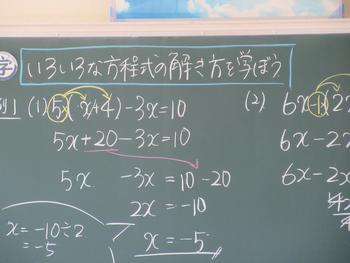 学 いろいろな方程式の解き方を学ぼう
例1 (1) 5(x+4)-3x=10
5x+20-3x=10
5x -3x=10-20
2x=-10
x=-5
x=-10÷2
=-5
(2) 6x-1(2x
6x-2x
6x-2x